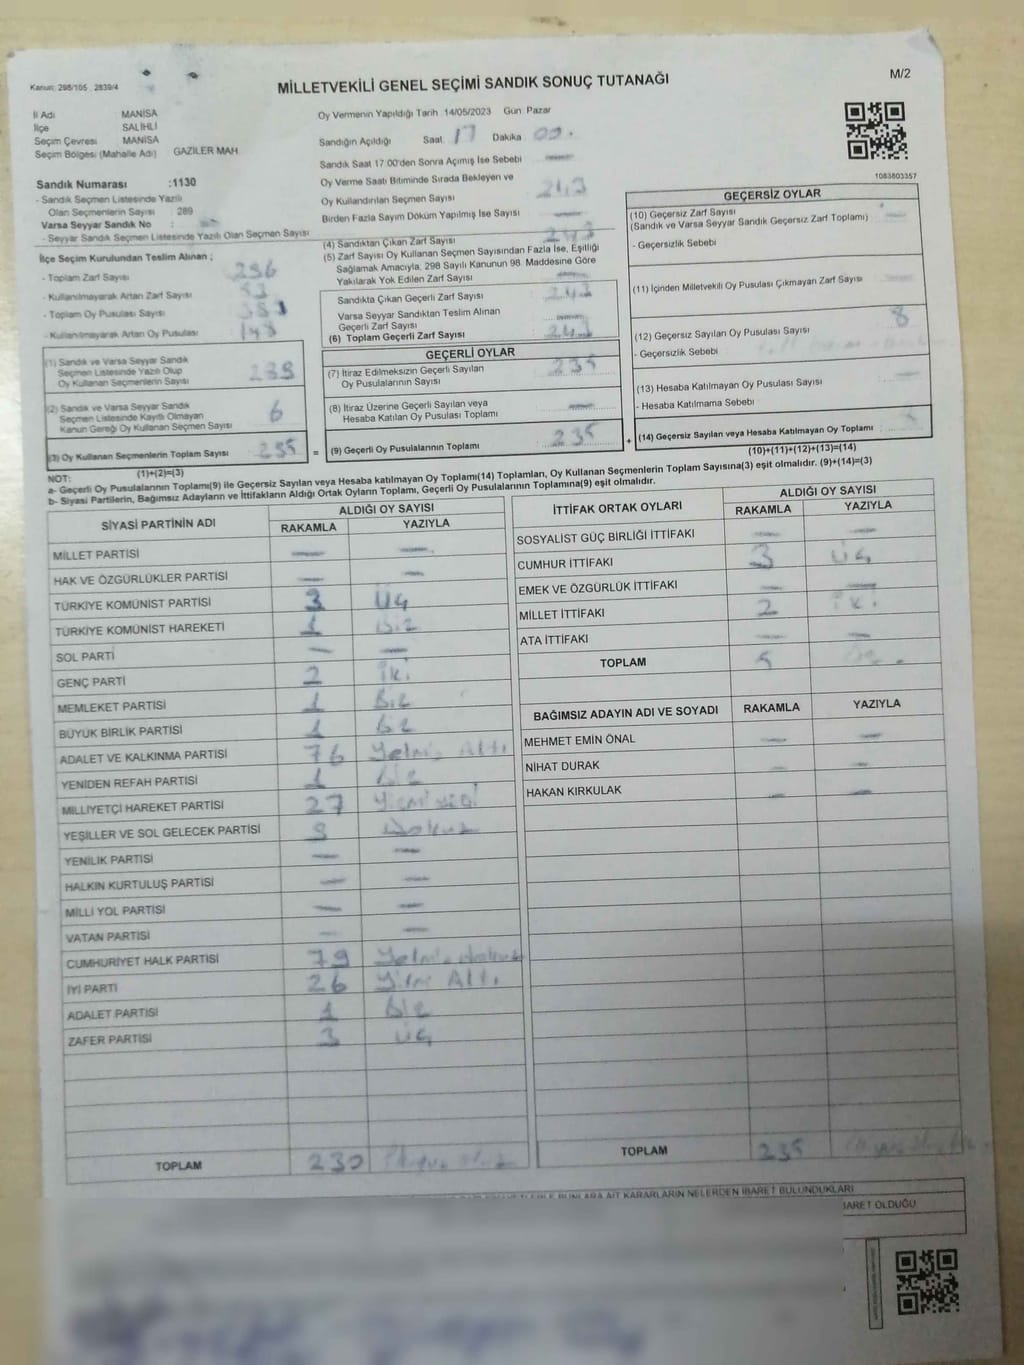 Kanun: 298/105 2839/4
MİLLETVEKİLİ GENEL SEÇİMİ SANDIK SONUÇ TUTANAĞI
M/2
İl Adı MANİSA
İlçe SALİHLİ
Seçim Çevresi MANİSA
Seçim Bölgesi (Mahalle Adı) GAZİLER MAH.
Sandık Numarası :1130
- Sandık Seçmen Listesinde Yazılı
Olan Seçmenlerin Sayısı : 289
Varsa Seyyar Sandık No :
- Seyyar Sandık Seçmen Listesinde Yazılı Olan Seçmen Sayısı
Oy Vermenin Yapıldığı Tarih 14/05/2023 Gün Pazar
Sandığın Açıldığı Saat 17 Dakika 00.
Sandık Saat 17:00'den Sonra Açımış İse Sebebi —
Oy Verme Saati Bitiminde Sırada Bekleyen ve
Oy Kullandırılan Seçmen Sayısı
Birden Fazla Sayım Döküm Yapılmış İse Sayısı —
1083803357
İlçe Seçim Kurulundan Teslim Alınan ;
- Toplam Zarf Sayısı
- Kullanılmayarak Artan Zarf Sayısı
- Toplam Oy Pusulası Sayısı
- Kullanılmayarak Artan Oy Pusulası
(1) Sandık ve Varsa Seyyar Sandık
Seçmen Listesinde Yazılı Olup
Oy Kullanan Seçmenlerin Sayısı
(2) Sandık ve Varsa Seyyar Sandık
Seçmen Listesinde Kayıtlı Olmayan
Kanun Gereği Oy Kullanan Seçmen Sayısı 6
(3) Oy Kullanan Seçmenlerin Toplam Sayısı
(1)+(2)=(3)
(4) Sandıktan Çıkan Zarf Sayısı 243
(5) Zarf Sayısı Oy Kullanan Seçmen Sayısından Fazla İse, Eşitliği
Sağlamak Amacıyla, 298 Sayılı Kanunun 98. Maddesine Göre
Yakılarak Yok Edilen Zarf Sayısı —
Sandıkta Çıkan Geçerli Zarf Sayısı 243
Varsa Seyyar Sandıktan Teslim Alınan
Geçerli Zarf Sayısı —
(6) Toplam Geçerli Zarf Sayısı 243
GEÇERLİ OYLAR
(7) İtiraz Edilmeksizin Geçerli Sayılan
Oy Pusulalarının Sayısı 235
(8) İtiraz Üzerine Geçerli Sayılan veya
Hesaba Katılan Oy Pusulası Toplamı —
= (9) Geçerli Oy Pusulalarının Toplamı 235 +
GEÇERSİZ OYLAR
(10) Geçersiz Zarf Sayısı
(Sandık ve Varsa Seyyar Sandık Geçersiz Zarf Toplamı) : —
- Geçersizlik Sebebi
(11) İçinden Milletvekili Oy Pusulası Çıkmayan Zarf Sayısı —
(12) Geçersiz Sayılan Oy Pusulası Sayısı 8
- Geçersizlik Sebebi
(13) Hesaba Katılmayan Oy Pusulası Sayısı —
- Hesaba Katılmama Sebebi
(14) Geçersiz Sayılan veya Hesaba Katılmayan Oy Toplamı :
(10)+(11)+(12)+(13)=(14)
NOT:
a- Geçerli Oy Pusulalarının Toplamı(9) ile Geçersiz Sayılan veya Hesaba katılmayan Oy Toplamı(14) Toplamları, Oy Kullanan Seçmenlerin Toplam Sayısına(3) eşit olmalıdır. (9)+(14)=(3)
b- Siyasi Partilerin, Bağımsız Adayların ve İttifakların Aldığı Ortak Oyların Toplamı, Geçerli Oy Pusulalarının Toplamına(9) eşit olmalıdır.
SİYASİ PARTİNİN ADI ALDIĞI OY SAYISI
RAKAMLA YAZIYLA
MİLLET PARTİSİ — —
HAK VE ÖZGÜRLÜKLER PARTİSİ — —
TÜRKİYE KOMÜNİST PARTİSİ 3 Üç
TÜRKİYE KOMÜNİST HAREKETİ 1 Bir
SOL PARTİ — —
GENÇ PARTİ 2 İki
MEMLEKET PARTİSİ 1 Bir
BÜYÜK BİRLİK PARTİSİ 1 Bir
ADALET VE KALKINMA PARTİSİ 76 Yetmiş Altı
YENİDEN REFAH PARTİSİ 1 Bir
MİLLİYETÇİ HAREKET PARTİSİ 27 Yirmi yedi
YEŞİLLER VE SOL GELECEK PARTİSİ 9 Dokuz
YENİLİK PARTİSİ — —
HALKIN KURTULUŞ PARTİSİ — —
MİLLİ YOL PARTİSİ — —
VATAN PARTİSİ — —
CUMHURİYET HALK PARTİSİ 79 Yetmiş dokuz
İYİ PARTİ 26 Yirmi Altı
ADALET PARTİSİ 1 Bir
ZAFER PARTİSİ 3 Üç
TOPLAM 230
İTTİFAK ORTAK OYLARI ALDIĞI OY SAYISI
RAKAMLA YAZIYLA
SOSYALİST GÜÇ BİRLİĞİ İTTİFAKI — —
CUMHUR İTTİFAKI 3 Üç
EMEK VE ÖZGÜRLÜK İTTİFAKI — —
MİLLET İTTİFAKI 2 İki
ATA İTTİFAKI — —
TOPLAM 5
BAĞIMSIZ ADAYIN ADI VE SOYADI RAKAMLA YAZIYLA
MEHMET EMİN ÖNAL — —
NİHAT DURAK — —
HAKAN KIRKULAK — —
TOPLAM 235
BUNLARA AİT KARARLARIN NELERDEN İBARET BULUNDUKLARI
İBARET OLDUĞU